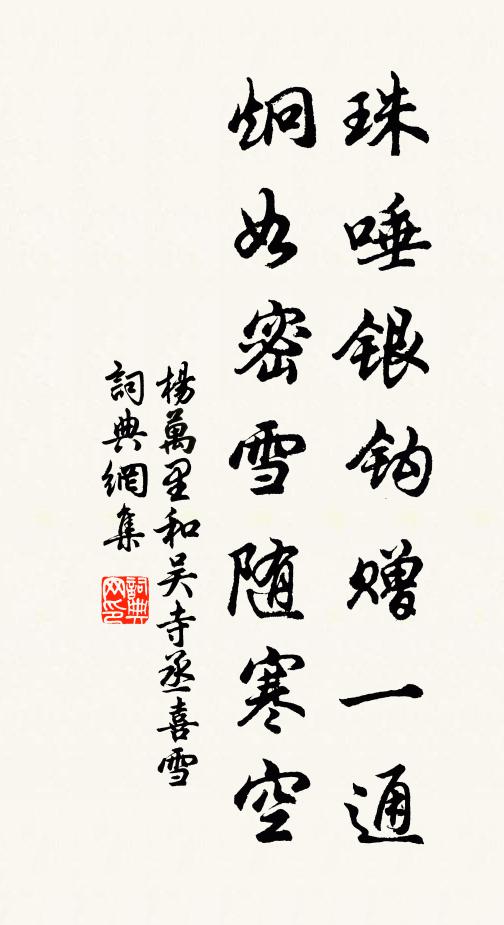 珠唾银钩赠一通
炯如密雪随寒空
楊萬里和吴寺丞喜雪
詞典網集
詞典網印